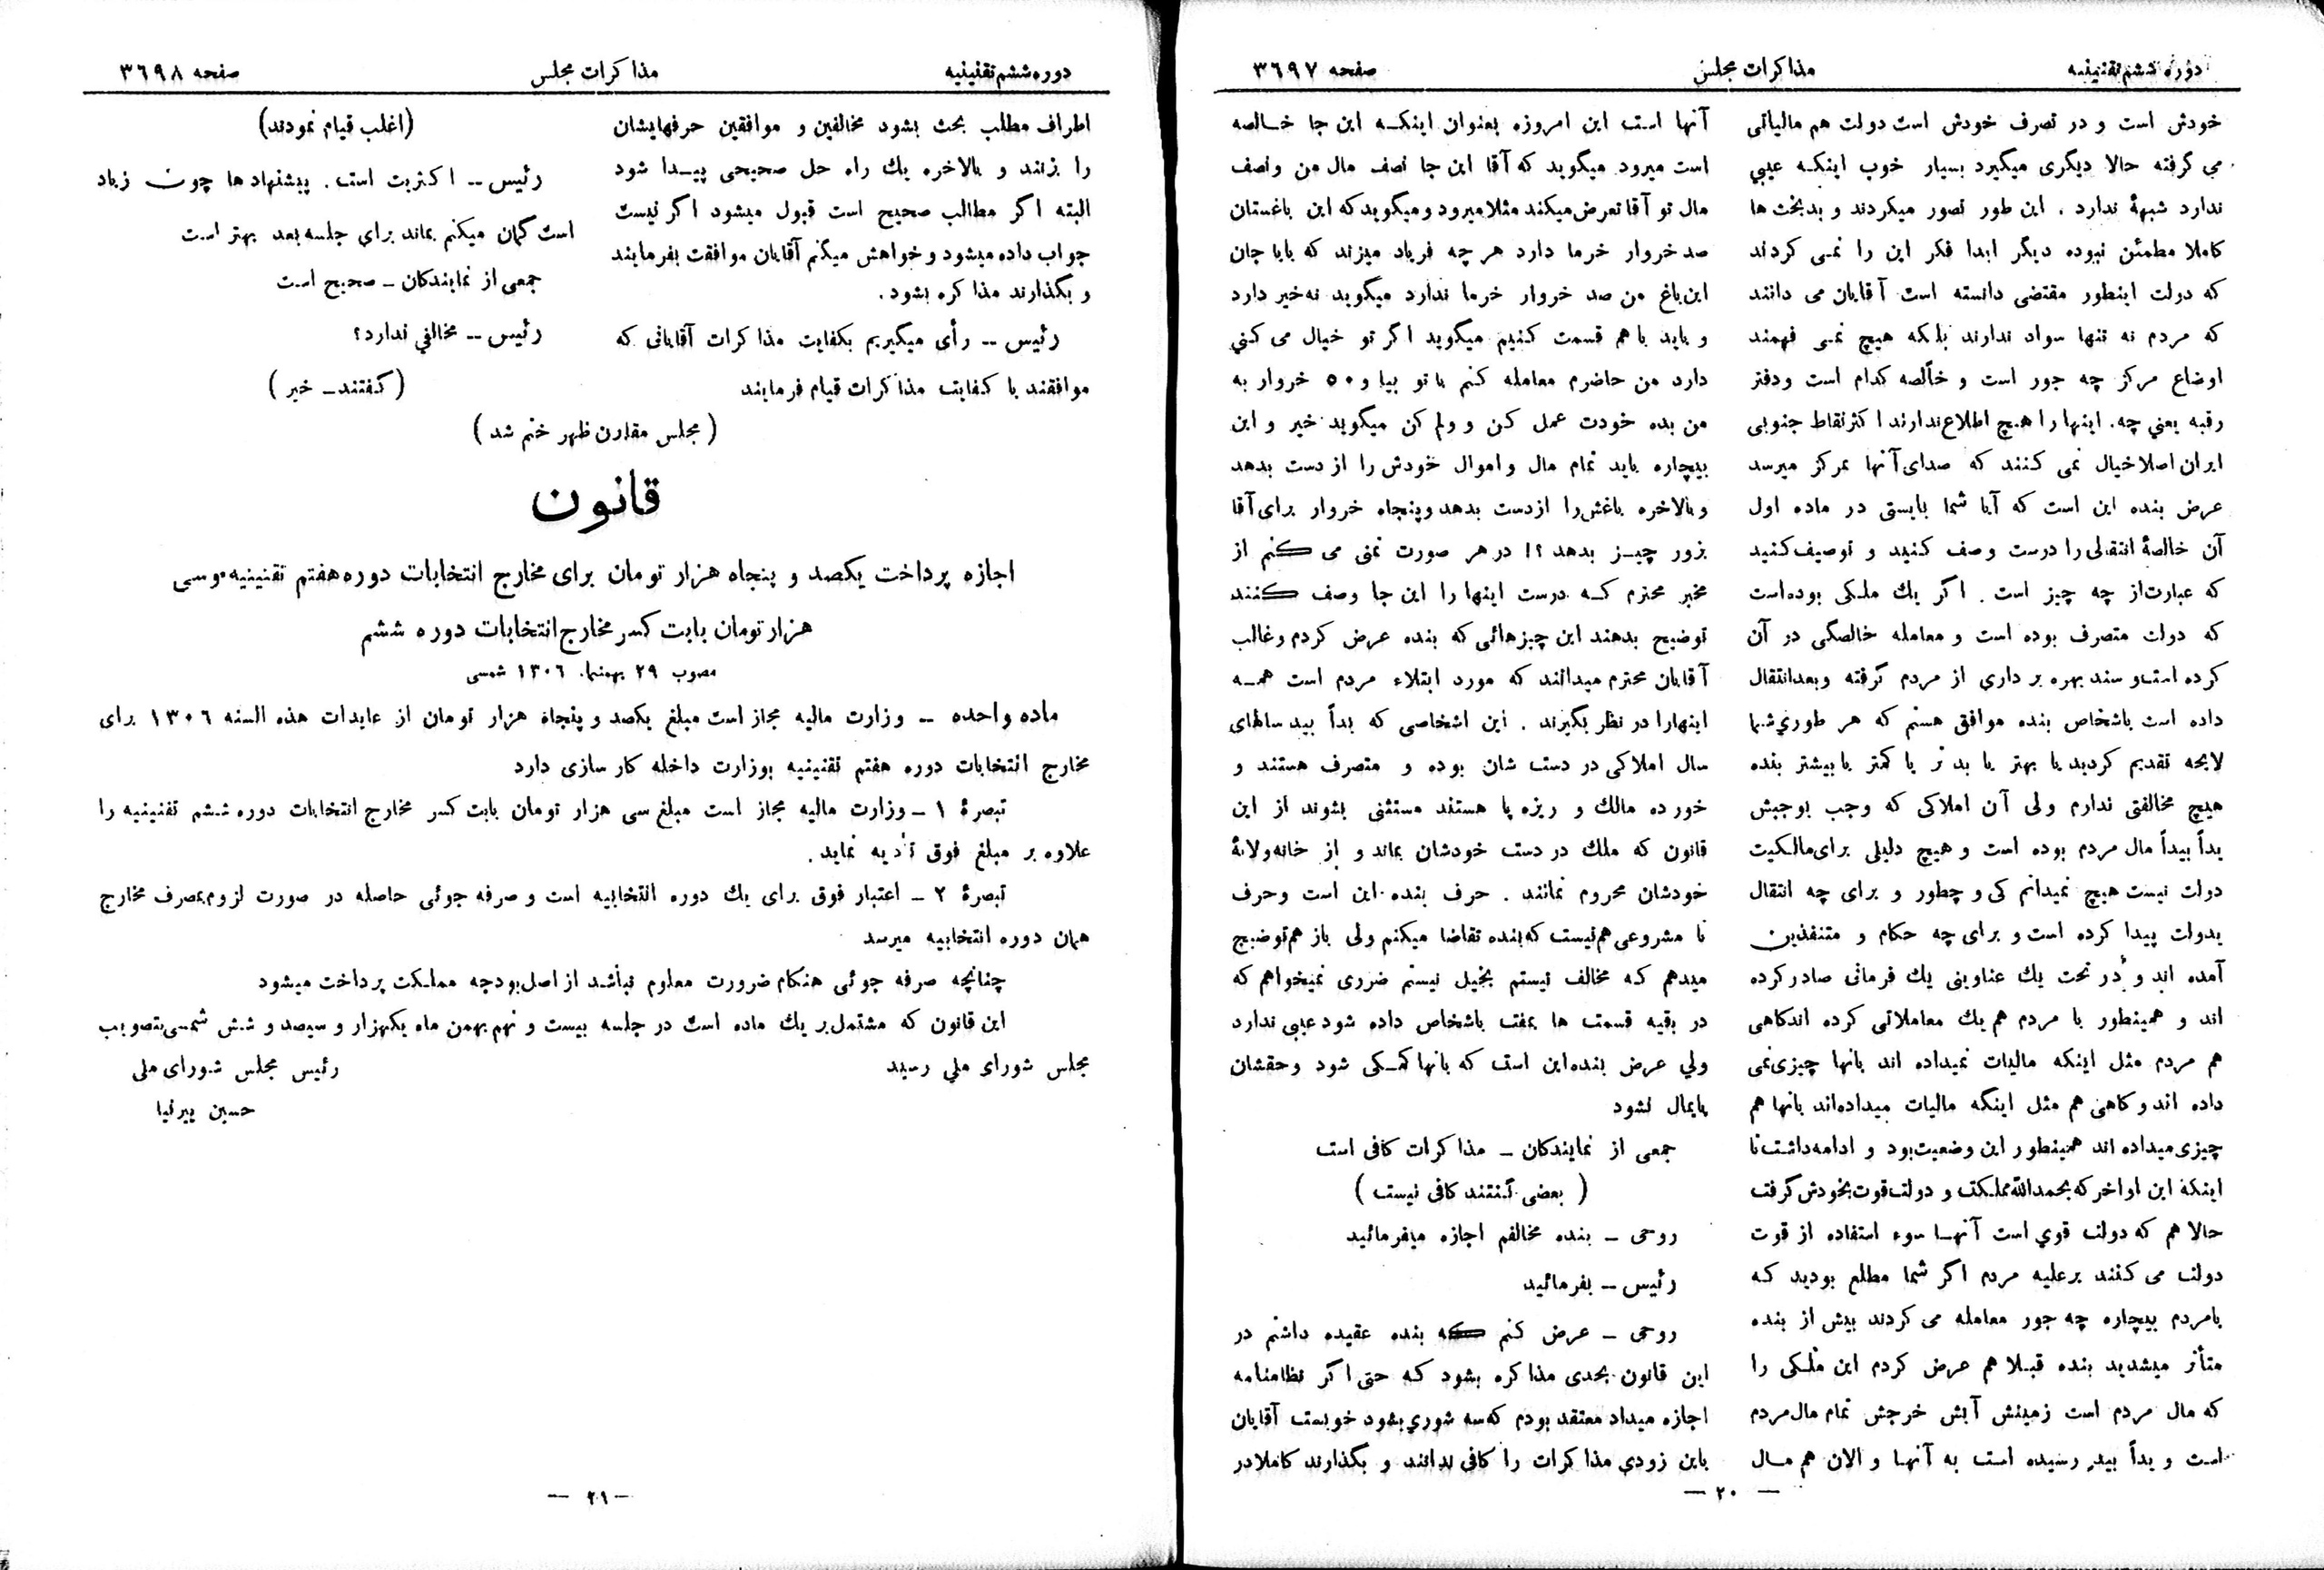 دوره ششم تقنینیه
مذاکرات مجلس
صفحه ۳٦۹۷
خودش است و در تصرف خودش است دولت هم مالیاتی
می گرفته حالا دیگری میگیرد بسیار خوب اینکه عیبی
ندارد شبههٔ ندارد . این طور تصور میکردند و بدبخت ها
کاملا مطمئن نبوده دیگر ابدا فکر این را نمی کردند
که دولت اینطور مقتضی دانسته است آقایان می دانند
که مردم نه تنها سواد ندارند بلکه هیچ نمی فهمند
اوضاع مرکز چه جور است و خالصه کدام است ودفتر
رقبه یعنی چه. اینها را هیچ اطلاع ندارند اکثر نقاط جنوبی
ایران اصلا خیال نمی کنند که صدای آنها بمرکز میرسد
عرض بنده این است که آیا شما بایستی در ماده اول
آن خالصهٔ انتقالی را درست وصف کنید و توصیف کنید
که عبارت از چه چیز است . اگر یك ملکی بوده است
که دولت متصرف بوده است و معامله خالصگی در آن
کرده است و سند بهره برداری از مردم گرفته وبعد انتقال
داده است باشخاص بنده موافق هستم که هر طوری شما
لایحه تقدیم کردید یا بهتر یا بدتر یا کمتر یا بیشتر بنده
هیچ مخالفتی ندارم ولی آن املاکی که وجب بوجبش
یداً بیداً مال مردم بوده است و هیچ دلیلی برای مالکیت
دولت نیست هیچ نمیدانم کی و چطور و برای چه انتقال
بدولت پیدا کرده است و برای چه حکام و متنفذین
آمده اند و در تحت یك عناوینی یك فرمانی صادر کرده
اند و همینطور با مردم هم یك معاملاتی کرده اند گاهی
هم مردم مثل اینکه مالیات نمیداده اند بانها چیزی نمی
داده اند و گاهی هم مثل اینکه مالیات میداده‌اند بانها هم
چیزی میداده اند همینطور این وضعیت بود و ادامه داشت تا
اینکه این اواخر که بحمدالله مملکت و دولت قوت بخودش گرفت
حالا هم که دولت قوی است آنها سوء استفاده از قوت
دولت می کنند بر علیه مردم اگر شما مطلع بودید که
بامردم بیچاره چه جور معامله می کردند بیش از بنده
متأثر میشدید بنده قبلا هم عرض کردم این ملکی را
که مال مردم است زمینش آبش خرجش تمام مال مردم
است و یداً بید رسیده است به آنها و الان هم مال
آنها است این امروزه بعنوان اینکه این جا خالصه
است میرود میگوید که آقا این جا نصف مال من ونصف
مال تو آقا تعرض میکند مثلا میرود و میگوید که این باغستان
صد خروار خرما دارد هر چه فریاد میزند که بابا جان
این باغ من صد خروار خرما ندارد میگوید نه خیر دارد
و باید با هم قسمت کنیم میگوید اگر تو خیال می کنی
دارد من حاضرم معامله کنم با تو بیا و ۵۰ خروار به
من بده خودت عمل کن و ولم کن میگوید خیر و این
بیچاره باید تمام مال و اموال خودش را از دست بدهد
وبالاخره باغش را از دست بدهد و پنجاه خروار برای آقا
بزور چیز بدهد ؟! در هر صورت تمنی می کنم از
مخبر محترم که درست اینها را این جا وصف کنند
توضیح بدهند این چیزهائی که بنده عرض کردم وغالب
آقایان محترم میدانند که مورد ابتلاء مردم است همه
اینهارا در نظر بگیرند . این اشخاصی که یداً بید سالهای
سال املاکی در دست شان بوده و متصرف هستند و
خورده مالك و ریزه پا هستند مستثنی بشوند از این
قانون که ملك در دست خودشان بماند و از خانه ولانهٔ
خودشان محروم نمانند . حرف بنده این است وحرف
نا مشروعی هم نیست که بنده تقاضا میکنم ولی باز هم توضیح
میدهم که مخالف نیستم بخیل نیستم ضرری نمیخواهم که
در بقیه قسمت ها بمفت باشخاص داده شود عیبی ندارد
ولی عرض بنده این است که بانها کمکی شود وحقشان
پایمال نشود
جمعی از نمایندگان ــ مذاکرات کافی است
( بعضی گفتند کافی نیست )
روحی ــ بنده مخالفم اجازه میفرمائید
رئیس ــ بفرمائید
روحی ــ عرض کنم که بنده عقیده داشتم در
این قانون بحدی مذاکره بشود که حتی اگر نظامنامه
اجازه میداد معتقد بودم که سه شوری بشود خوبست آقایان
باین زودی مذاکرات را کافی ندانند و بگذارند کاملا در
— ۲۰ —
دوره ششم تقنینیه
مذاکرات مجلس
صفحه ۳٦۹۸
اطراف مطلب بحث بشود مخالفین و موافقین حرفهایشان
را بزنند و بالاخره یك راه حل صحیحی پیدا شود
البته اگر مطالب صحیح است قبول میشود اگر نیست
جواب داده میشود و خواهش میکنم آقایان موافقت بفرمایند
و بگذارند مذاکره بشود .
رئیس ــ رأی میگیریم بکفایت مذاکرات آقایانی که
موافقند با کفایت مذاکرات قیام فرمایند
(اغلب قیام نمودند)
رئیس ــ اکثریت است . پیشنهادها چون زیاد
است گمان میکنم بماند برای جلسه بعد بهتر است
جمعی از نمایندگان ــ صحیح است
رئیس ــ مخالفی ندارد؟
( گفتند ــ خیر )
( مجلس مقارن ظهر ختم شد )
قانون
اجازه پرداخت یکصد و پنجاه هزار تومان برای مخارج انتخابات دوره هفتم تقنینیه وسی
هزار تومان بابت کسر مخارج انتخابات دوره ششم
مصوب ۲۹ بهمنماه ۱۳۰٦ شمسی
ماده واحده ــ وزارت مالیه مجاز است مبلغ یکصد و پنجاه هزار تومان از عایدات هذه السنه ۱۳۰٦ برای
مخارج انتخابات دوره هفتم تقنینیه بوزارت داخله کار سازی دارد
تبصرهٔ ۱ ــ وزارت مالیه مجاز است مبلغ سی هزار تومان بابت کسر مخارج انتخابات دوره ششم تقنینیه را
علاوه بر مبلغ فوق تأدیه نماید .
تبصرهٔ ۲ ــ اعتبار فوق برای یك دوره انتخابیه است و صرفه جوئی حاصله در صورت لزوم بمصرف مخارج
همان دوره انتخابیه میرسد
چنانچه صرفه جوئی هنگام ضرورت معلوم نباشد از اصل بودجه مملکت پرداخت میشود
این قانون که مشتمل بر یك ماده است در جلسه بیست و نهم بهمن ماه یکهزار و سیصد و شش شمسی بتصویب
مجلس شورای ملی رسید
رئیس مجلس شورای ملی
حسین پیرنیا
— ۲۱ —